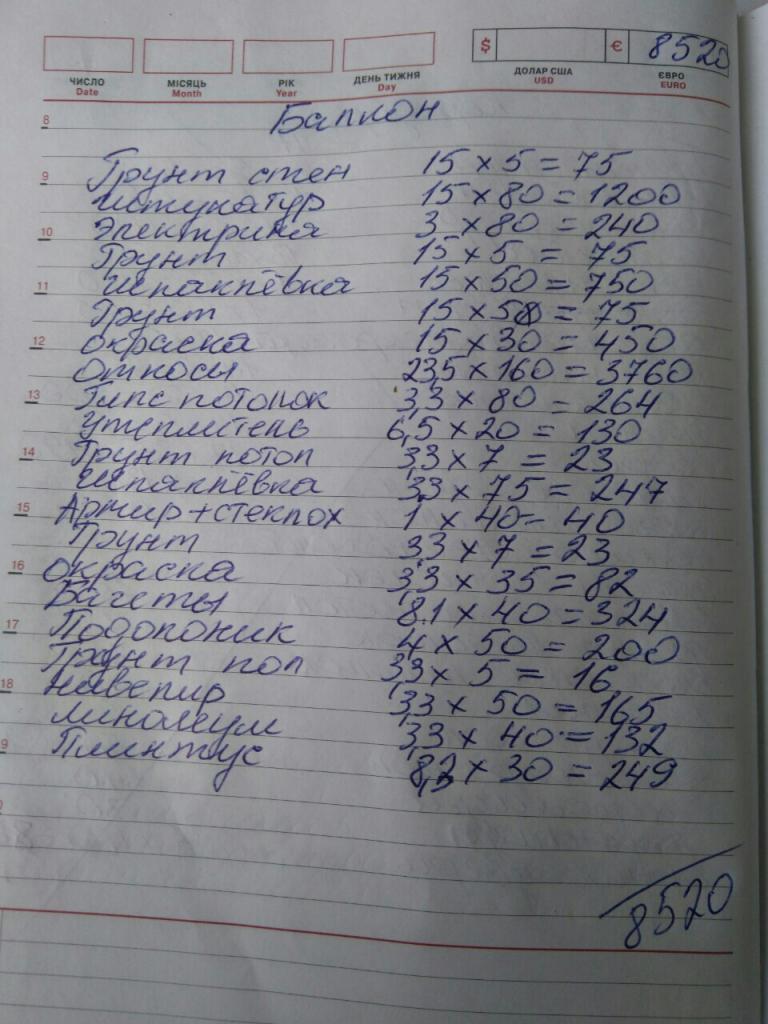 $ € 8520
ЧИСЛО МІСЯЦЬ РІК ДЕНЬ ТИЖНЯ ДОЛАР США ЄВРО
Date Month Year Day USD EURO
8 Балкон
9 Грунт стен 15 × 5 = 75
штукатур 15 × 80 = 1200
10 Электрика 3 × 80 = 240
Грунт 15 × 5 = 75
11 Шпаклёвка 15 × 50 = 750
Грунт 15 × 5 = 75
12 окраска 15 × 30 = 450
Откосы 23,5 × 160 = 3760
13 Гипс потолок 3,3 × 80 = 264
Утеплитель 6,5 × 20 = 130
14 Грунт потол 3,3 × 7 = 23
Шпаклёвка 3,3 × 75 = 247
15 Армир + стеклох 1 × 40 = 40
Грунт 3,3 × 7 = 23
16 Окраска 3,3 × 35 = 82
Багеты 8.1 × 40 = 324
17 Подоконик 4 × 50 = 200
Грунт пол 3,3 × 5 = 16
18 навелир 3,3 × 50 = 165
линолеум 3,3 × 40 = 132
9 Плинтус 8,3 × 30 = 249
8520